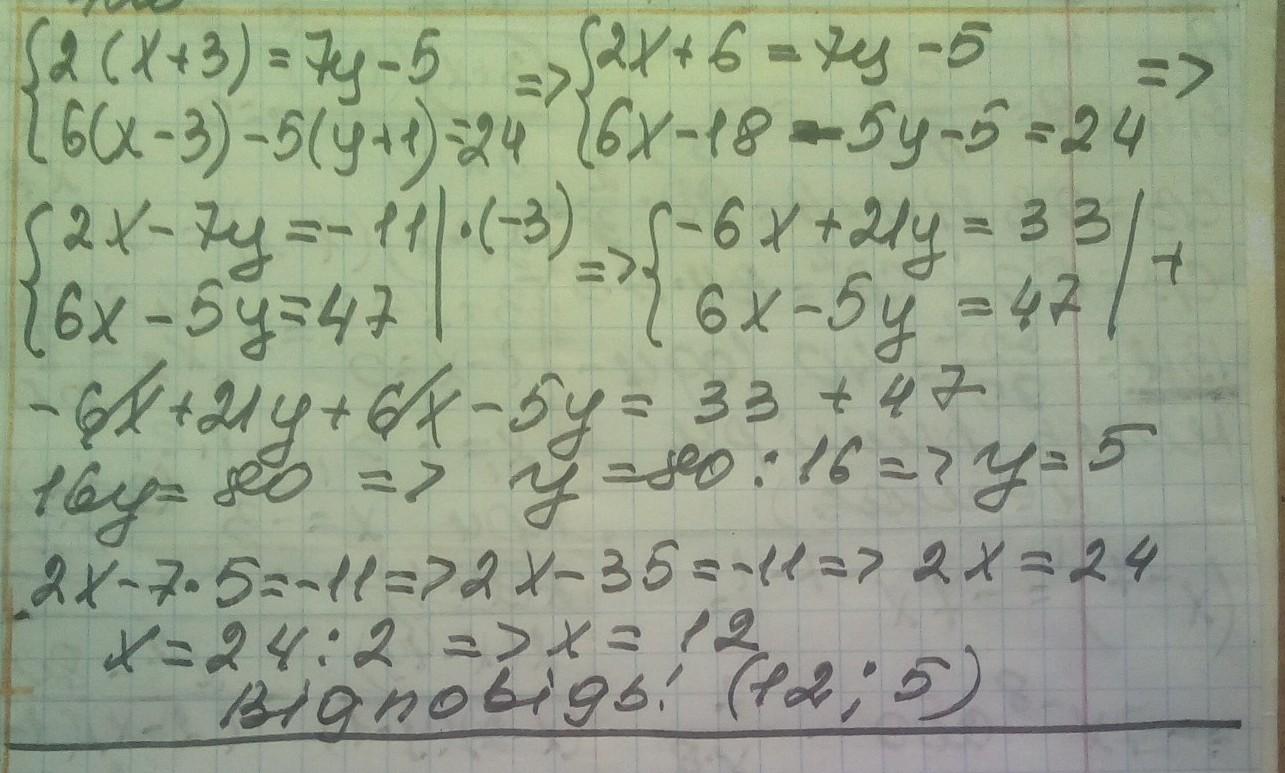 {2(x+3)=7y-5 => {2x+6=7y-5 =>
{6(x-3)-5(y+1)=24 {6x-18-5y-5=24
{2x-7y=-11|·(-3) => {-6x+21y=33|+
{6x-5y=47| {6x-5y=47|
-6x+21y+6x-5y=33+47
16y=80 => y=80:16=>y=5
2x-7·5=-11=>2x-35=-11=>2x=24
x=24:2 => x=12
Відповідь: (12;5)